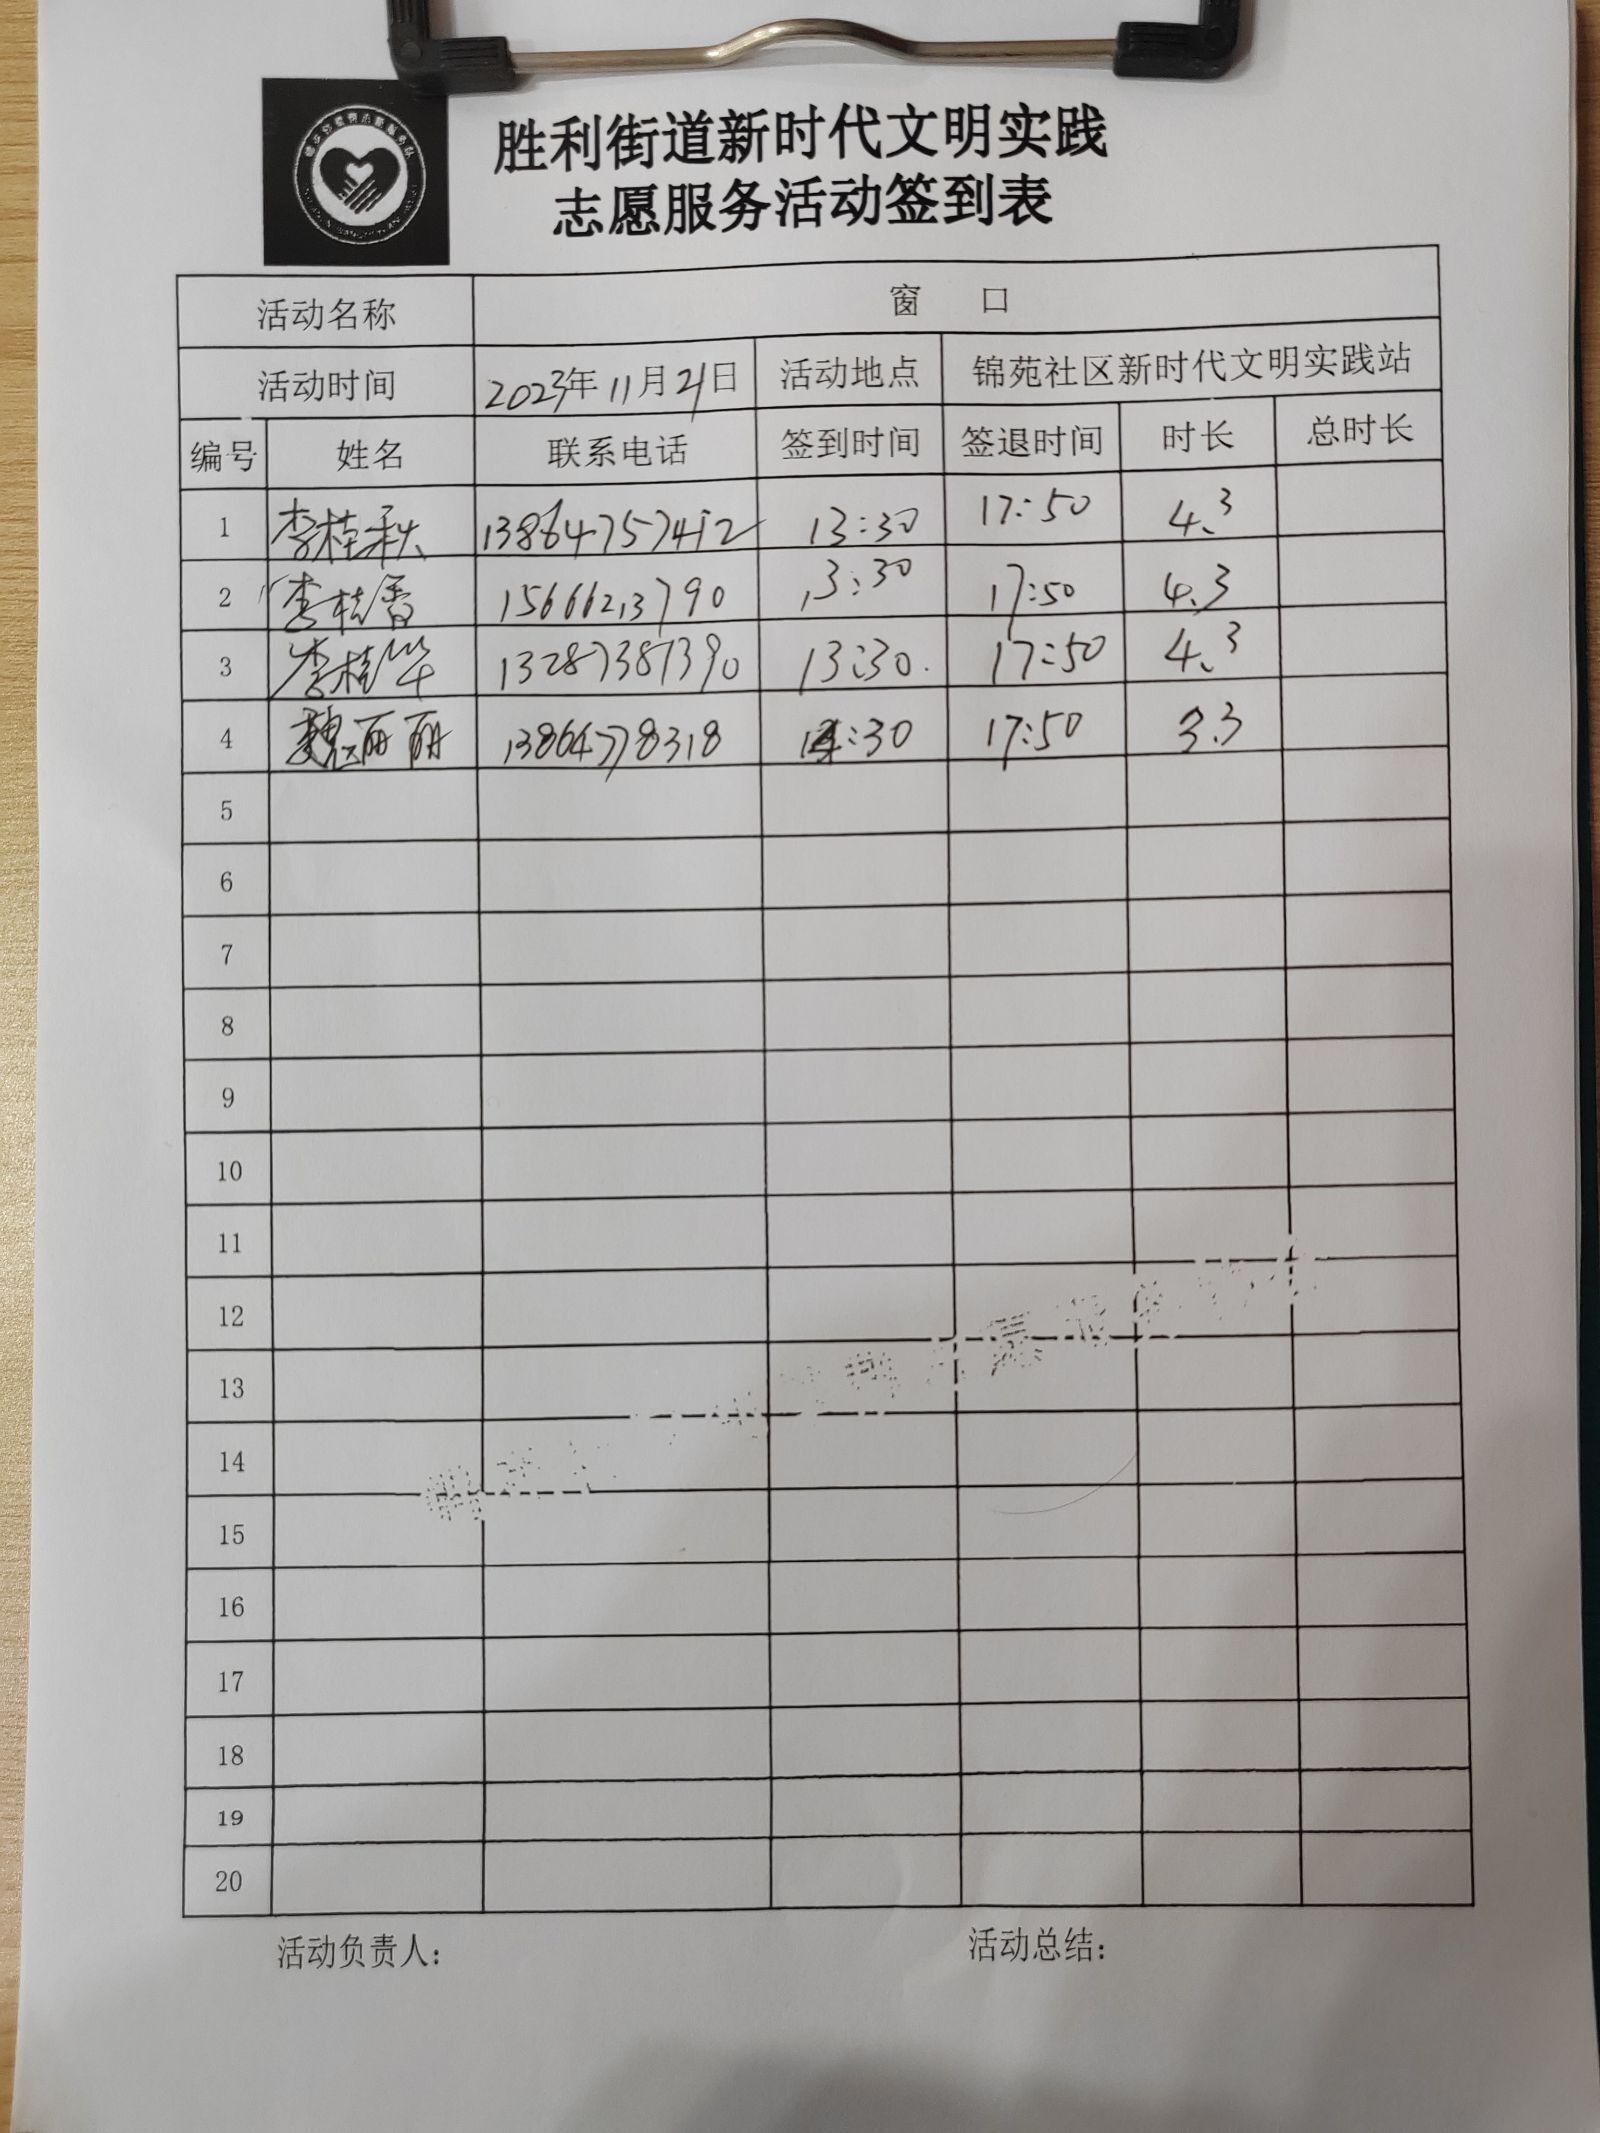 胜利街道新时代文明实践
志愿服务活动签到表
活动名称 窗 口
活动时间 2023年11月21日 活动地点 锦苑社区新时代文明实践站
编号 姓名 联系电话 签到时间 签退时间 时长 总时长
1 李桂秋 13864757412 13:30 17:50 4.3
2 李桂香 15666213790 13:30 17:50 4.3
3 李桂华 13287387390 13:30 17:50 4.3
4 魏丽丽 13864778318 14:30 17:50 3.3
5
6
7
8
9
10
11
12
13
14
15
16
17
18
19
20
活动负责人： 活动总结：